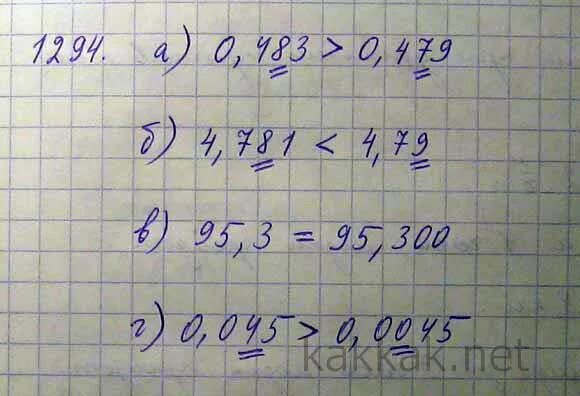 1294. а) 0,483 > 0,479
б) 4,781 < 4,79
в) 95,3 = 95,300
г) 0,045 > 0,0045
kakkak.net